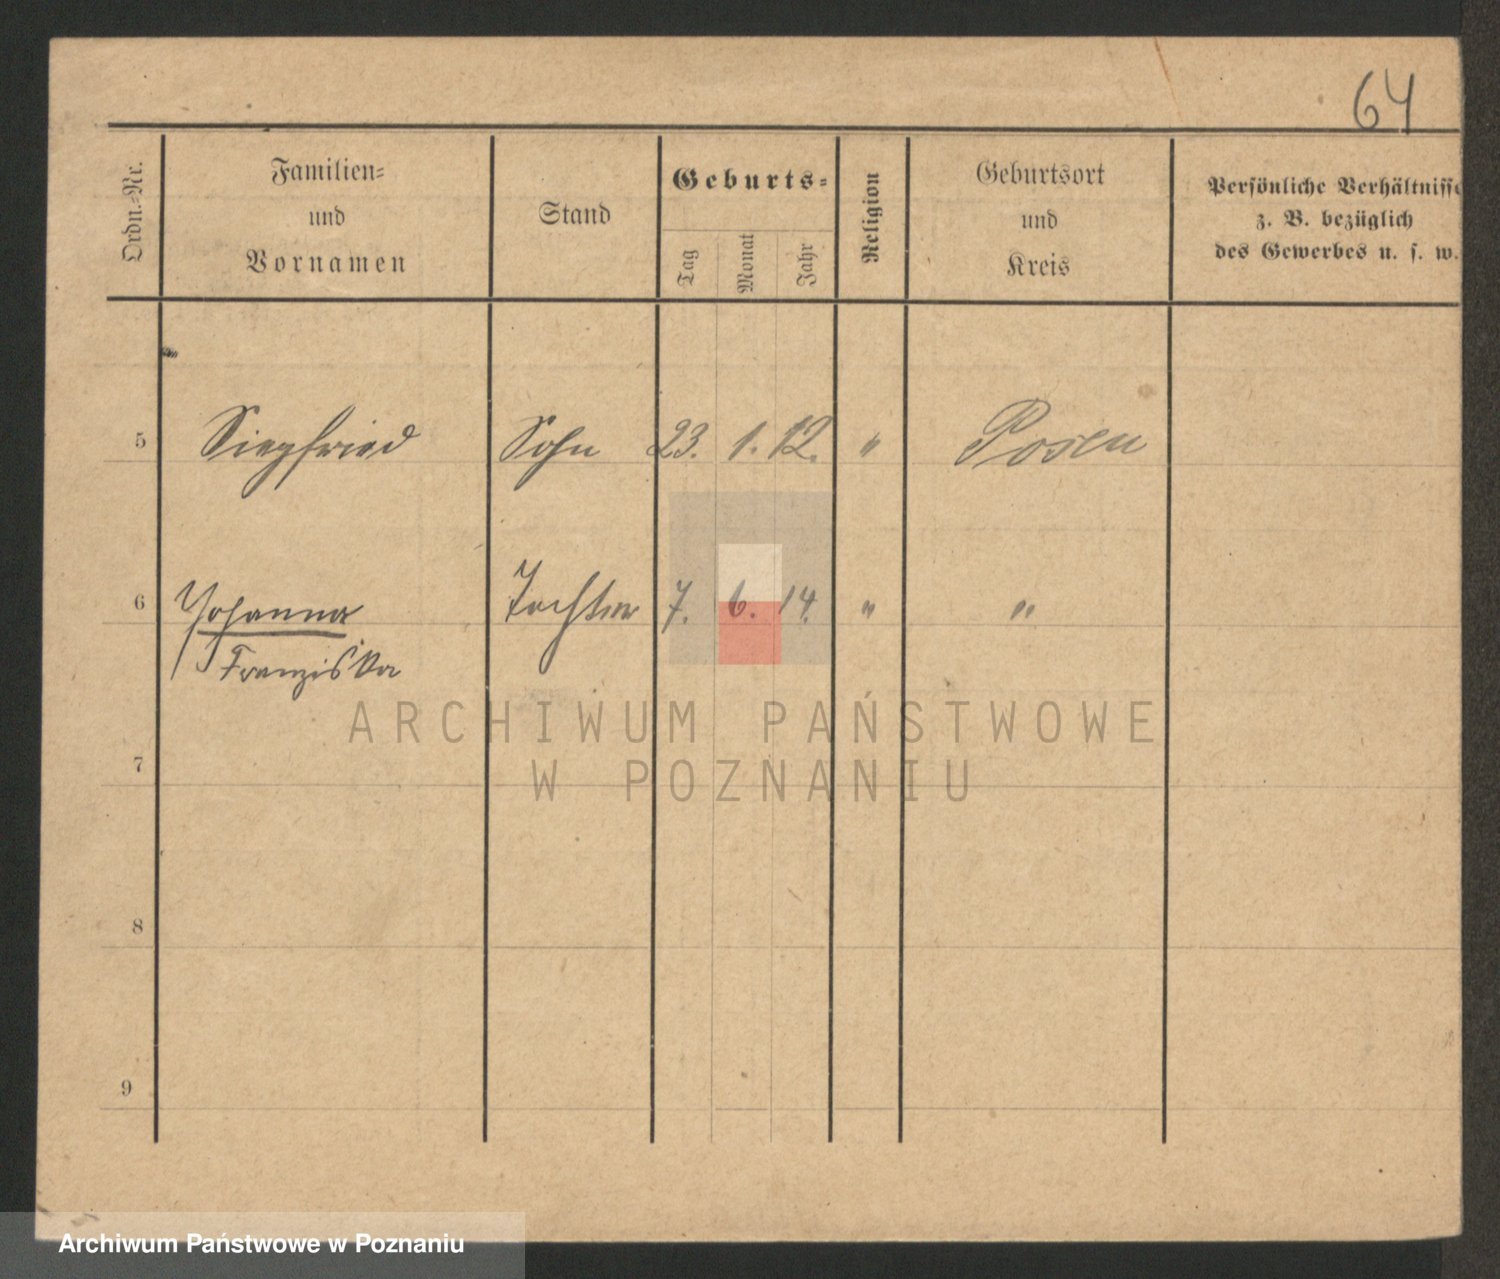 64
Ordn.-Nr.
Familien-
und
Vornamen
Stand
Geburts-
Tag
Monat
Jahr
Religion
Geburtsort
und
Kreis
Persönliche Verhältnisse
z. B. bezüglich
des Gewerbes u. s. w.
5 Siegfried Sohn 23. 1. 12. " Posen
6 Johanna Tochter 7. 6. 14. " "
Franziska
ARCHIWUM PAŃSTWOWE
W POZNANIU
7
8
9
Archiwum Państwowe w Poznaniu